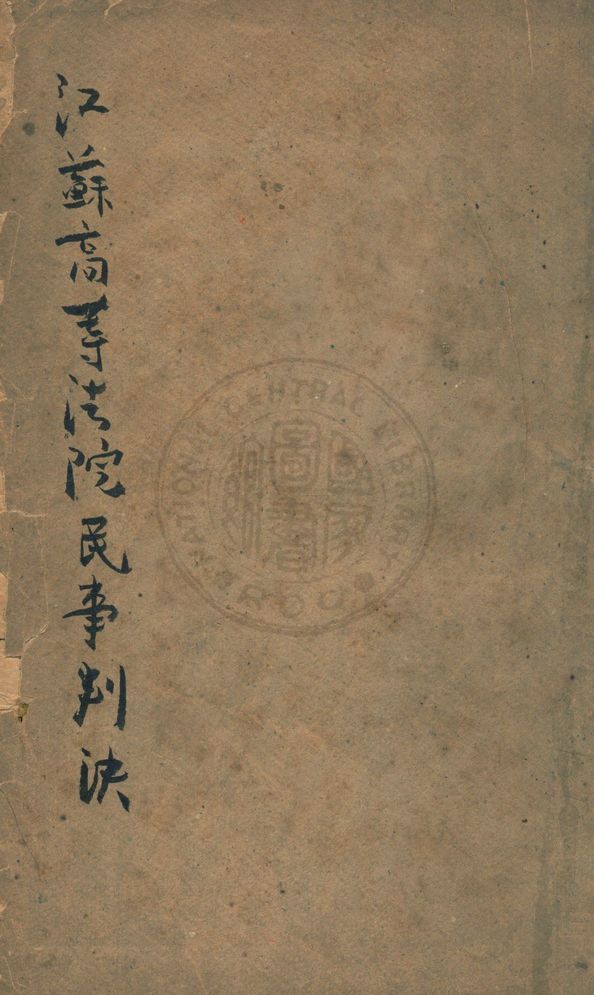 江蘇高等法院民事判决
NATIONAL CENTRAL LIBRARY
ROC
國家圖書館